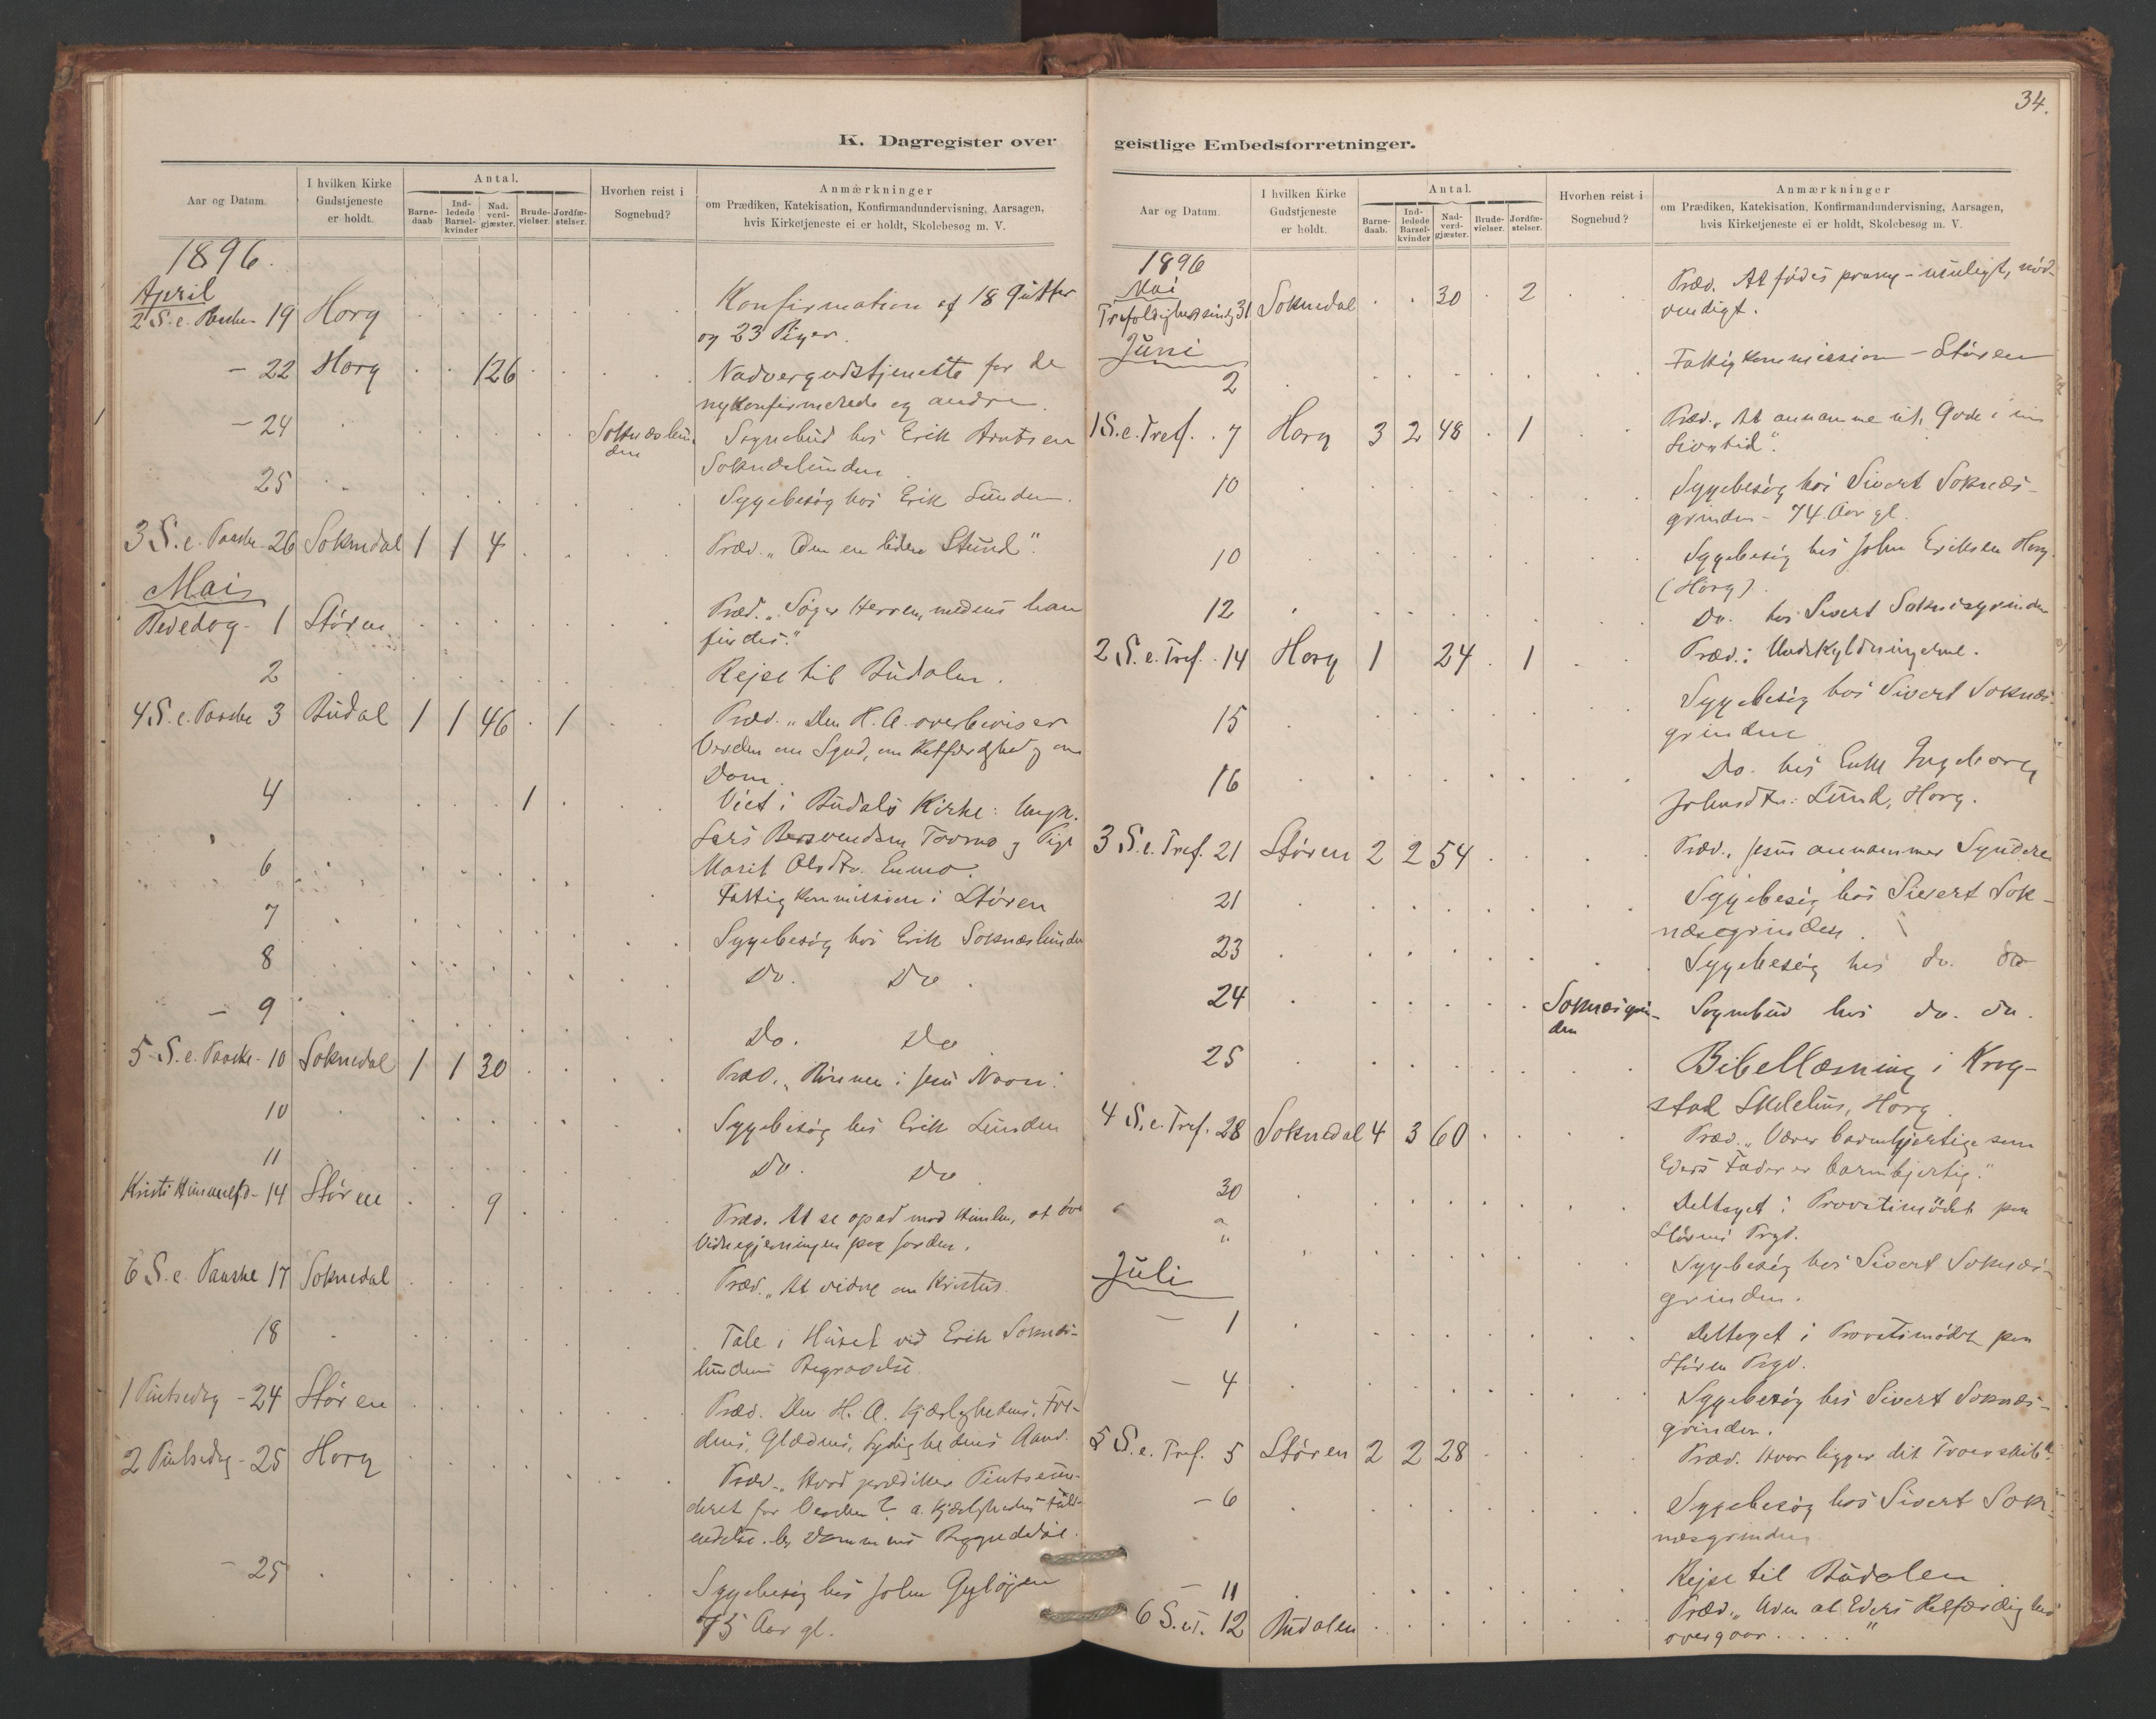 34.
K. Dagregister over
Aar og Datum. I hvilken Kirke Gudstjeneste er holdt. Antal. Barne-daab Ind-ledede Barsel-kvinder Nad-verd-gjæster. Brude-vielser. Jordfæ-stelser. Hvorhen reist i Sognebud? Anmærkninger
om Prædiken, Katekisation, Konfirmandundervisning, Aarsagen,
hvis Kirketjeneste ei er holdt, Skolebesøg m. V.
1896.
April
2 S. e. Paaske 19 Horg Konfirmation af 18 Gutter
og 23 Piger.
- 22 Horg 126 Nadvergudstjeneste for de
nykonfirmerede og andre.
- 24 Soknæslunden Sognebud hos Erik Arntsen
Soknæslunden
25 Sygebesøg hos Erik Lunden.
3 S. e. Paaske 26 Soknedal 1 1 4 Præd. "Om en liden Stund".
Mai
Bededag - 1 Støren Præd. "Søger Herren, medens han
findes."
2 Rejse til Budalen.
4 S. e. Paaske 3 Budal 1 1 46 1 Præd. "Den H. A. overbeviser
Verden om Synd, om Retfærdighed og om
Dom.
4 1 Viet i Budals Kirke: Ungk.
Lars Tovmo og Pige
Marit Olsdtr. Enmo.
6 Fattigkommission i Støren
7 Sygebesøg hos Erik Soknæslunden
8 Do. Do.
- 9 Do. Do
5 S. e. Paaske - 10 Soknedal 1 1 30 Præd. "Bønnen i Jesu Navn".
10 Sygebesøg hos Erik Lunden
11 Do. Do
Kristi Himmelfd - 14 Støren 9 Præd. At se opad mod Himlen, at øve
Vidnegjerningen paa Jorden.
6 S. e. Paaske 17 Soknedal Præd. "At vidne om Kristus.
18 Tale i Huset ved Erik Soknæs-
lundens Begravelse.
1 Pintsedag - 24 Støren Præd. Den H. A. Kjærlighedens, Fre-
dens, Glædens, Lydighedens Aand.
2 Pintsedag - 25 Horg Præd. "Hvad prædiker Pintseun-
deret for Verden? a. Kjærlighedens Fuld-
endelse. b, Dommens Begyndelse.
- 25 Sygebesøg hos John Gyløyen
75 Aar gl.
geistlige Embedsforretninger.
Aar og Datum. I hvilken Kirke Gudstjeneste er holdt. Antal. Barne-daab. Ind-ledede Barsel-kvinder Nad-verd-gjæster. Brude-vielser. Jordfæ-stelser. Hvorhen reist i Sognebud? Anmærkninger
om Prædiken, Katekisation, Konfirmandundervisning, Aarsagen,
hvis Kirketjeneste ei er holdt, Skolebesøg m. V.
1896
Mai
Trefoldighedssøndg 31 Soknedal 30 2 Præd. At fødes paany - muligt, nød-
vendigt.
Juni
2 Fattigkommission - Støren
1 S. e. Tref. 7 Horg 3 2 48 1 Præd. "At annamme sit Gode i sin
Livstid".
10 Sygebesøg hos Sivert Soknæs-
grinden - 74 Aar gl.
10 Sygebesøg hos John Eriksen Horg
(Horg).
12 Do. hos Sivert Soknæsgrinden
2 S. e. Tref. 14 Horg 1 24 1 Præd.: Undskyldningerne.
15 Sygebesøg hos Sivert Soknæs-
grinden
16 Do. hos Enke Ingeborg
Johnsdtr. Lund, Horg.
3 S. e. Tref. 21 Støren 2 2 54 Præd. Jesus annammer Syndere
21 Sygebesøg hos Sivert Sok-
næsgrinden.
23 Sygebesøg hos do. do
24 Soknæsgrinden Sognebud hos do. do.
25 Bibellæsning i Krog-
stad Skolehus, Horg.
4 S. e. Tref. 28 Soknedal 4 3 60 Præd. "Værer barmhjertige som
Eders Fader er barmhjertig."
30 Deltaget i Provstimødet paa
Størens Prgd.
" " Sygebesøg hos Sivert Soknæs-
grinden.
Juli
- 1 Deltaget i Provstimødet paa
Støren Prgd.
- 4 Sygebesøg hos Sivert Soknæs-
grinden.
5 S. e. Tref. 5 Støren 2 2 28 Præd. Hvor ligger dit Troesskib?
- 6 Sygebesøg hos Sivert Sok-
næsgrinden
- 11 Rejse til Budalen
6 S. e. T. 12 Budalen Præd. "Uden at Eders Retfærdighed
overgaar . . . . "